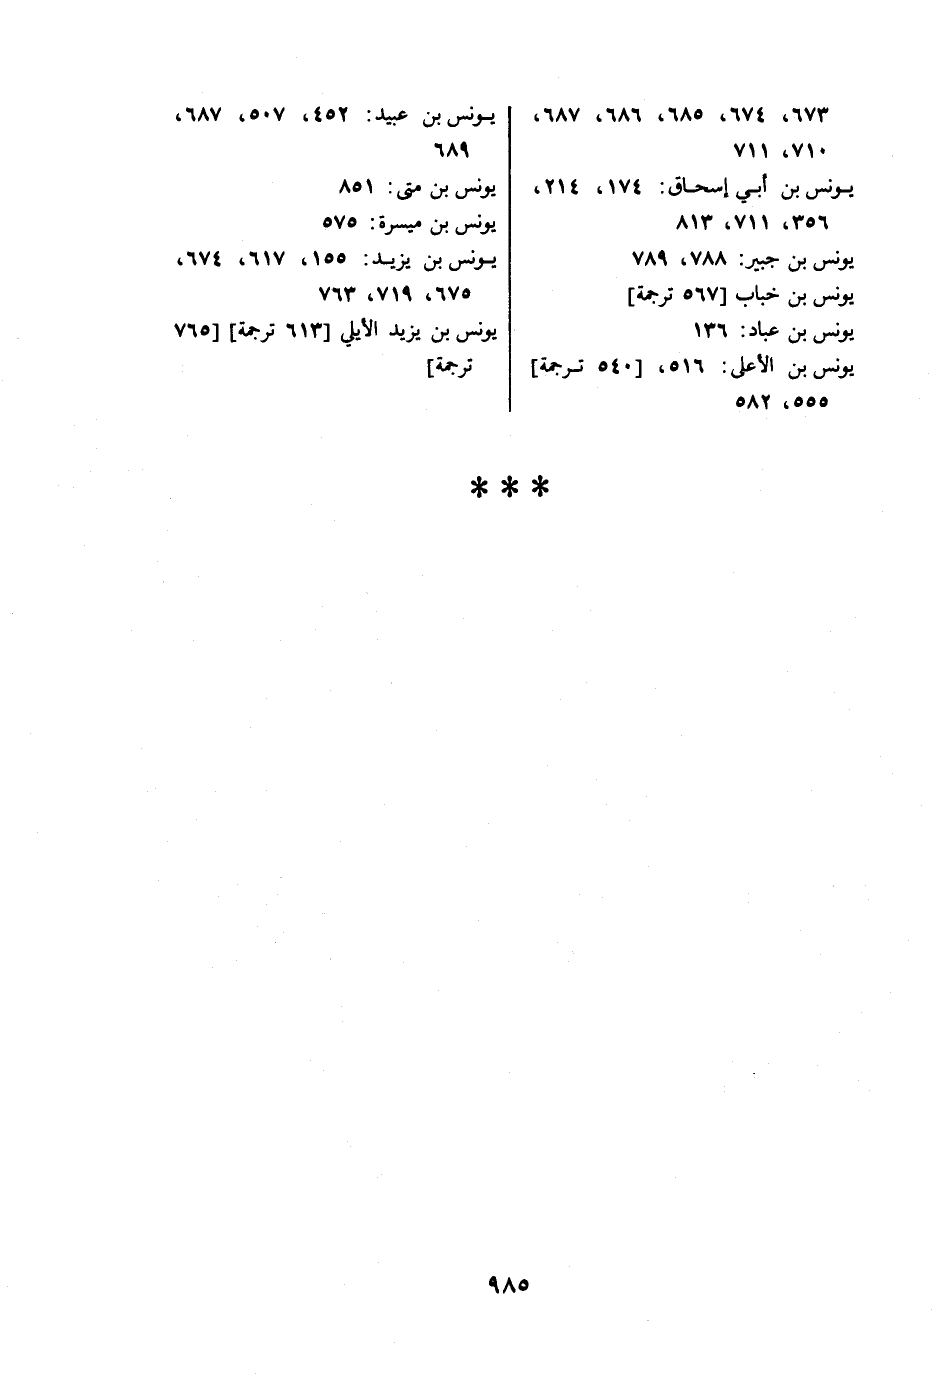 ٦٧٣، ٦٧٤، ٦٨٥، ٦٨٦، ٦٨٧،
٧١٠، ٧١١
يونس بن أبي إسحاق: ١٧٤، ٢١٤،
٣٥٦، ٧١١، ٨١٣
يونس بن جبير: ٧٨٨، ٧٨٩
يونس بن خباب [٥٦٧ ترجمة]
يونس بن عباد: ١٣٦
يونس بن الأعلى: ٥١٦، [٥٤٠ ترجمة]
٥٥٥، ٥٨٢
يونس بن عبيد: ٤٥٢، ٥٠٧، ٦٨٧،
٦٨٩
يونس بن متى: ٨٥١
يونس بن ميسرة: ٥٧٥
يونس بن يزيد: ١٥٥، ٦١٧، ٦٧٤،
٦٧٥، ٧١٩، ٧٦٣
يونس بن يزيد الأيلي [٦١٣ ترجمة] [٧٦٥
ترجمة]
***
٩٨٥